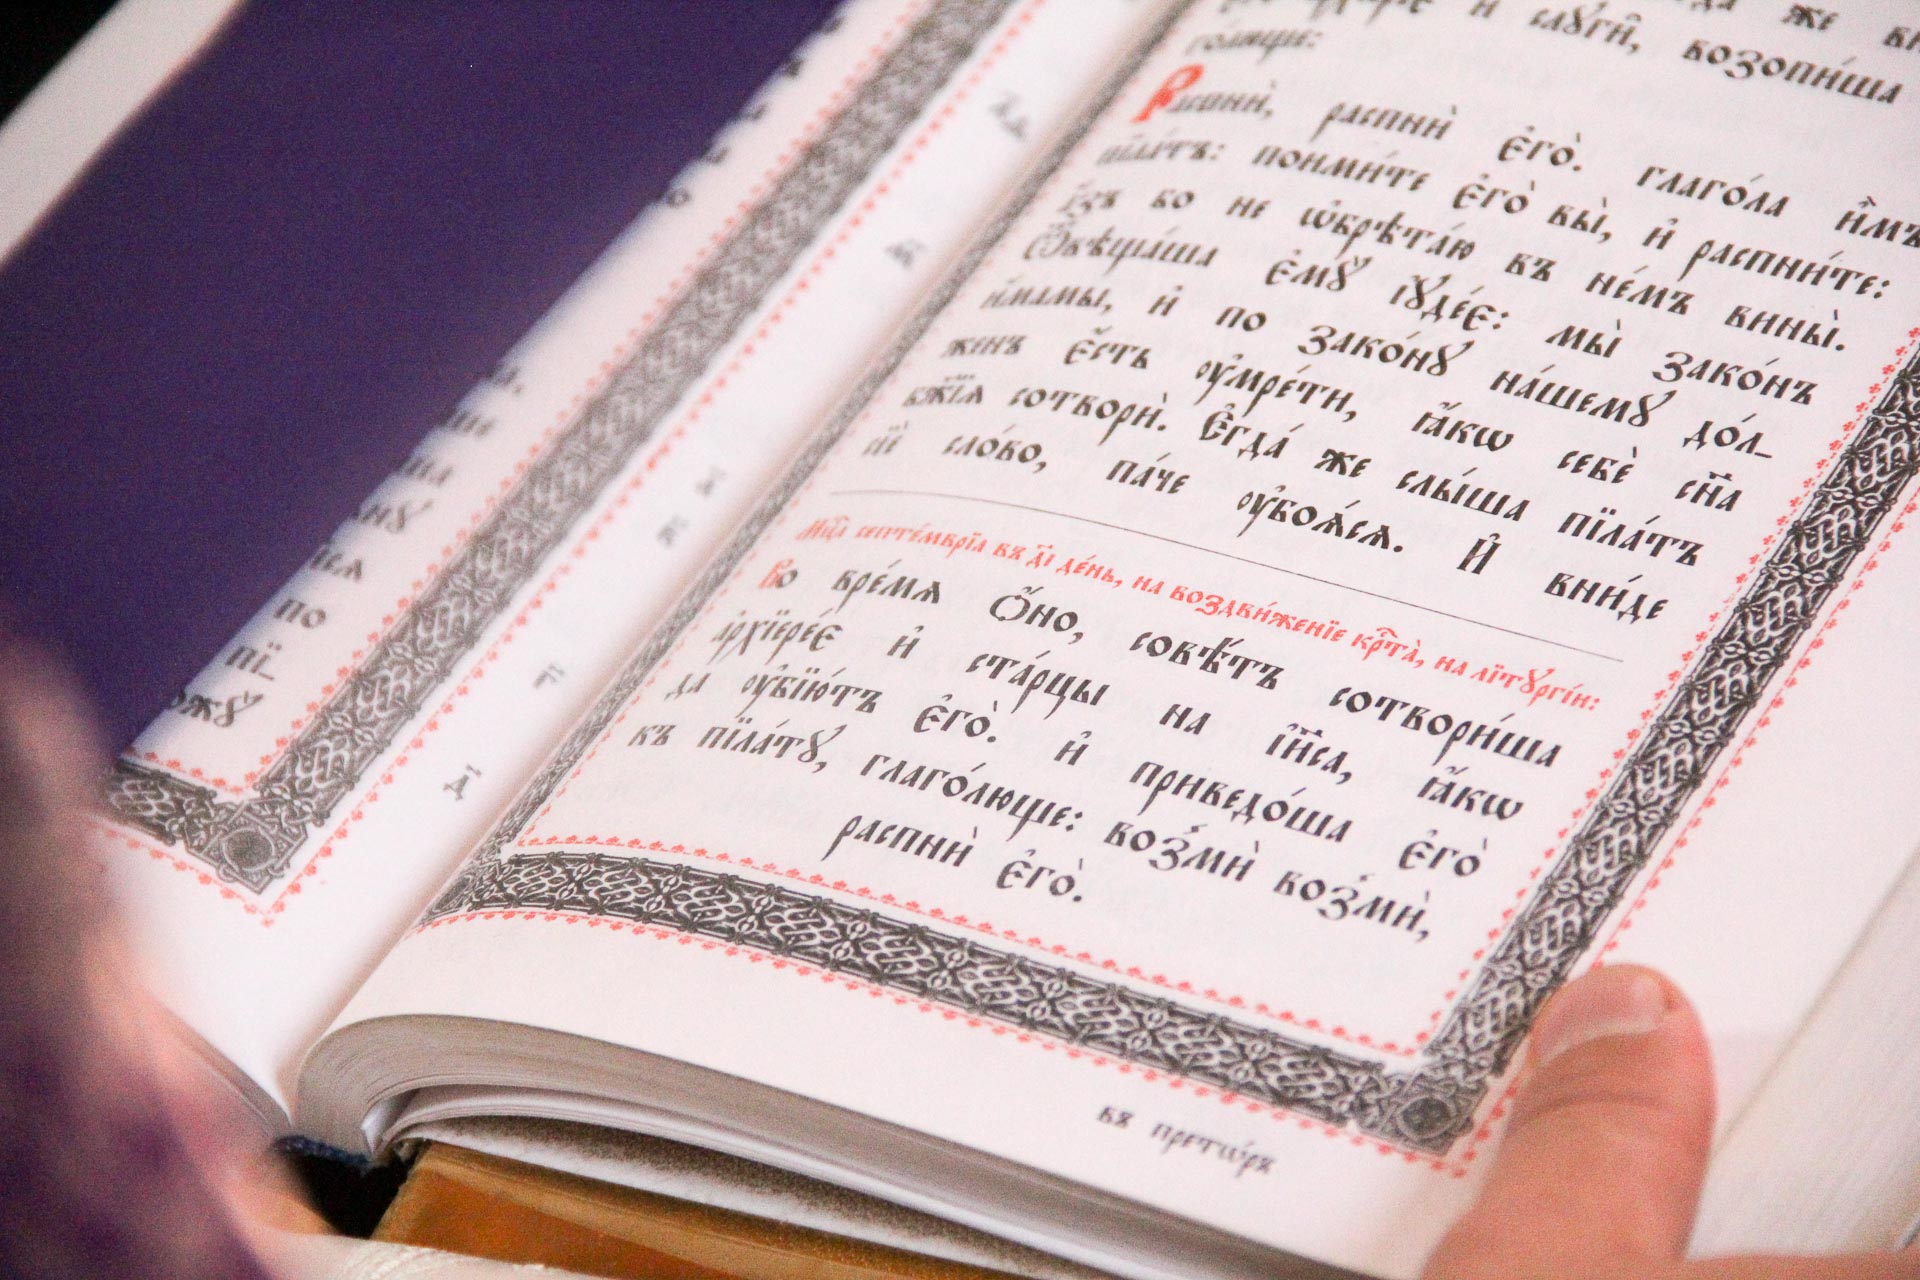 же
и҆ слꙋги̑, возопи́ша
голюще:
Распнѝ, распнѝ є҆го̀. глаго́ла и҆̀мъ
пїла́тъ: поими́те є҆го̀ вы̀, и҆ распни́те:
а҆́зъ бо не ѡ҆брѣта́ю въ не́мъ вины̀.
Ѿвѣща́ша є҆мꙋ̀ і҆ꙋде́є: мы̀ зако́нъ
и҆́мамы, и҆ по зако́нꙋ на́шемꙋ до́л_
женъ є҆́сть ᲂу҆мре́ти, ꙗ҆́кѡ себѐ сн҃а
бж҃їѧ сотворѝ. Є҆гда́ же слы́ша пїла́тъ
сїѐ сло́во, па́че ᲂу҆боѧ́сѧ. И҆ вни́де
Мц҇а септе́мврїа въ д҃і де́нь, на воздви́женїе крⷭ҇та̀, на лїтꙋргі́и:
Во вре́мѧ ѻ҆́но, совѣ́тъ сотвори́ша
а҆рхїере́є и҆ ста́рцы на і҆и҃са, ꙗ҆́кѡ
да ᲂу҆бїю́тъ є҆го̀. и҆ приведо́ша є҆го̀
къ пїла́тꙋ, глаго́люще: возмѝ возмѝ,
распнѝ є҆го̀.
въ претѡ́ръ
нꙋ
по
пї_
ожꙋ
д҃і